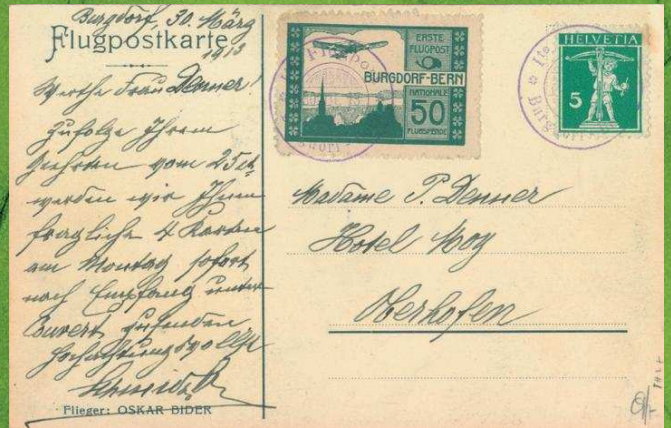 Burgdorf, 30. März
Flugpostkarte
1913
Werthe Frau Denner!
Zufolge Ihrem
Geehrten vom 25 ct.
werden wir Ihnen
fragliche 4 Karten
am Montag sofort
nach Empfang unter
Couvert zusenden
Hochachtungsvollst
Flieger: OSKAR BIDER
ERSTE
FLUGPOST
BURGDORF-BERN
NATIONALE
50
FLUGSPENDE
HELVETIA
5
Madame P. Denner
Hotel Moy
Oberhofen